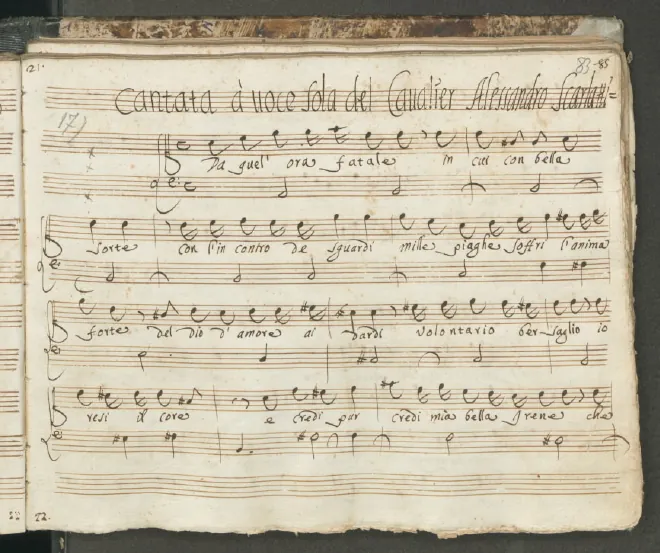 21.
83-85
Cantata à voce sola del Caualier Alessandro Scarlatti
17)
Da quel' ora fatale in cui con bella
sorte con l'in contro de sguardi mille piaghe soffri l'anima
forte del dio d'amore ai dardi volontario ber saglio io
resi il core e credi pur credi mia bella Irene che
22.